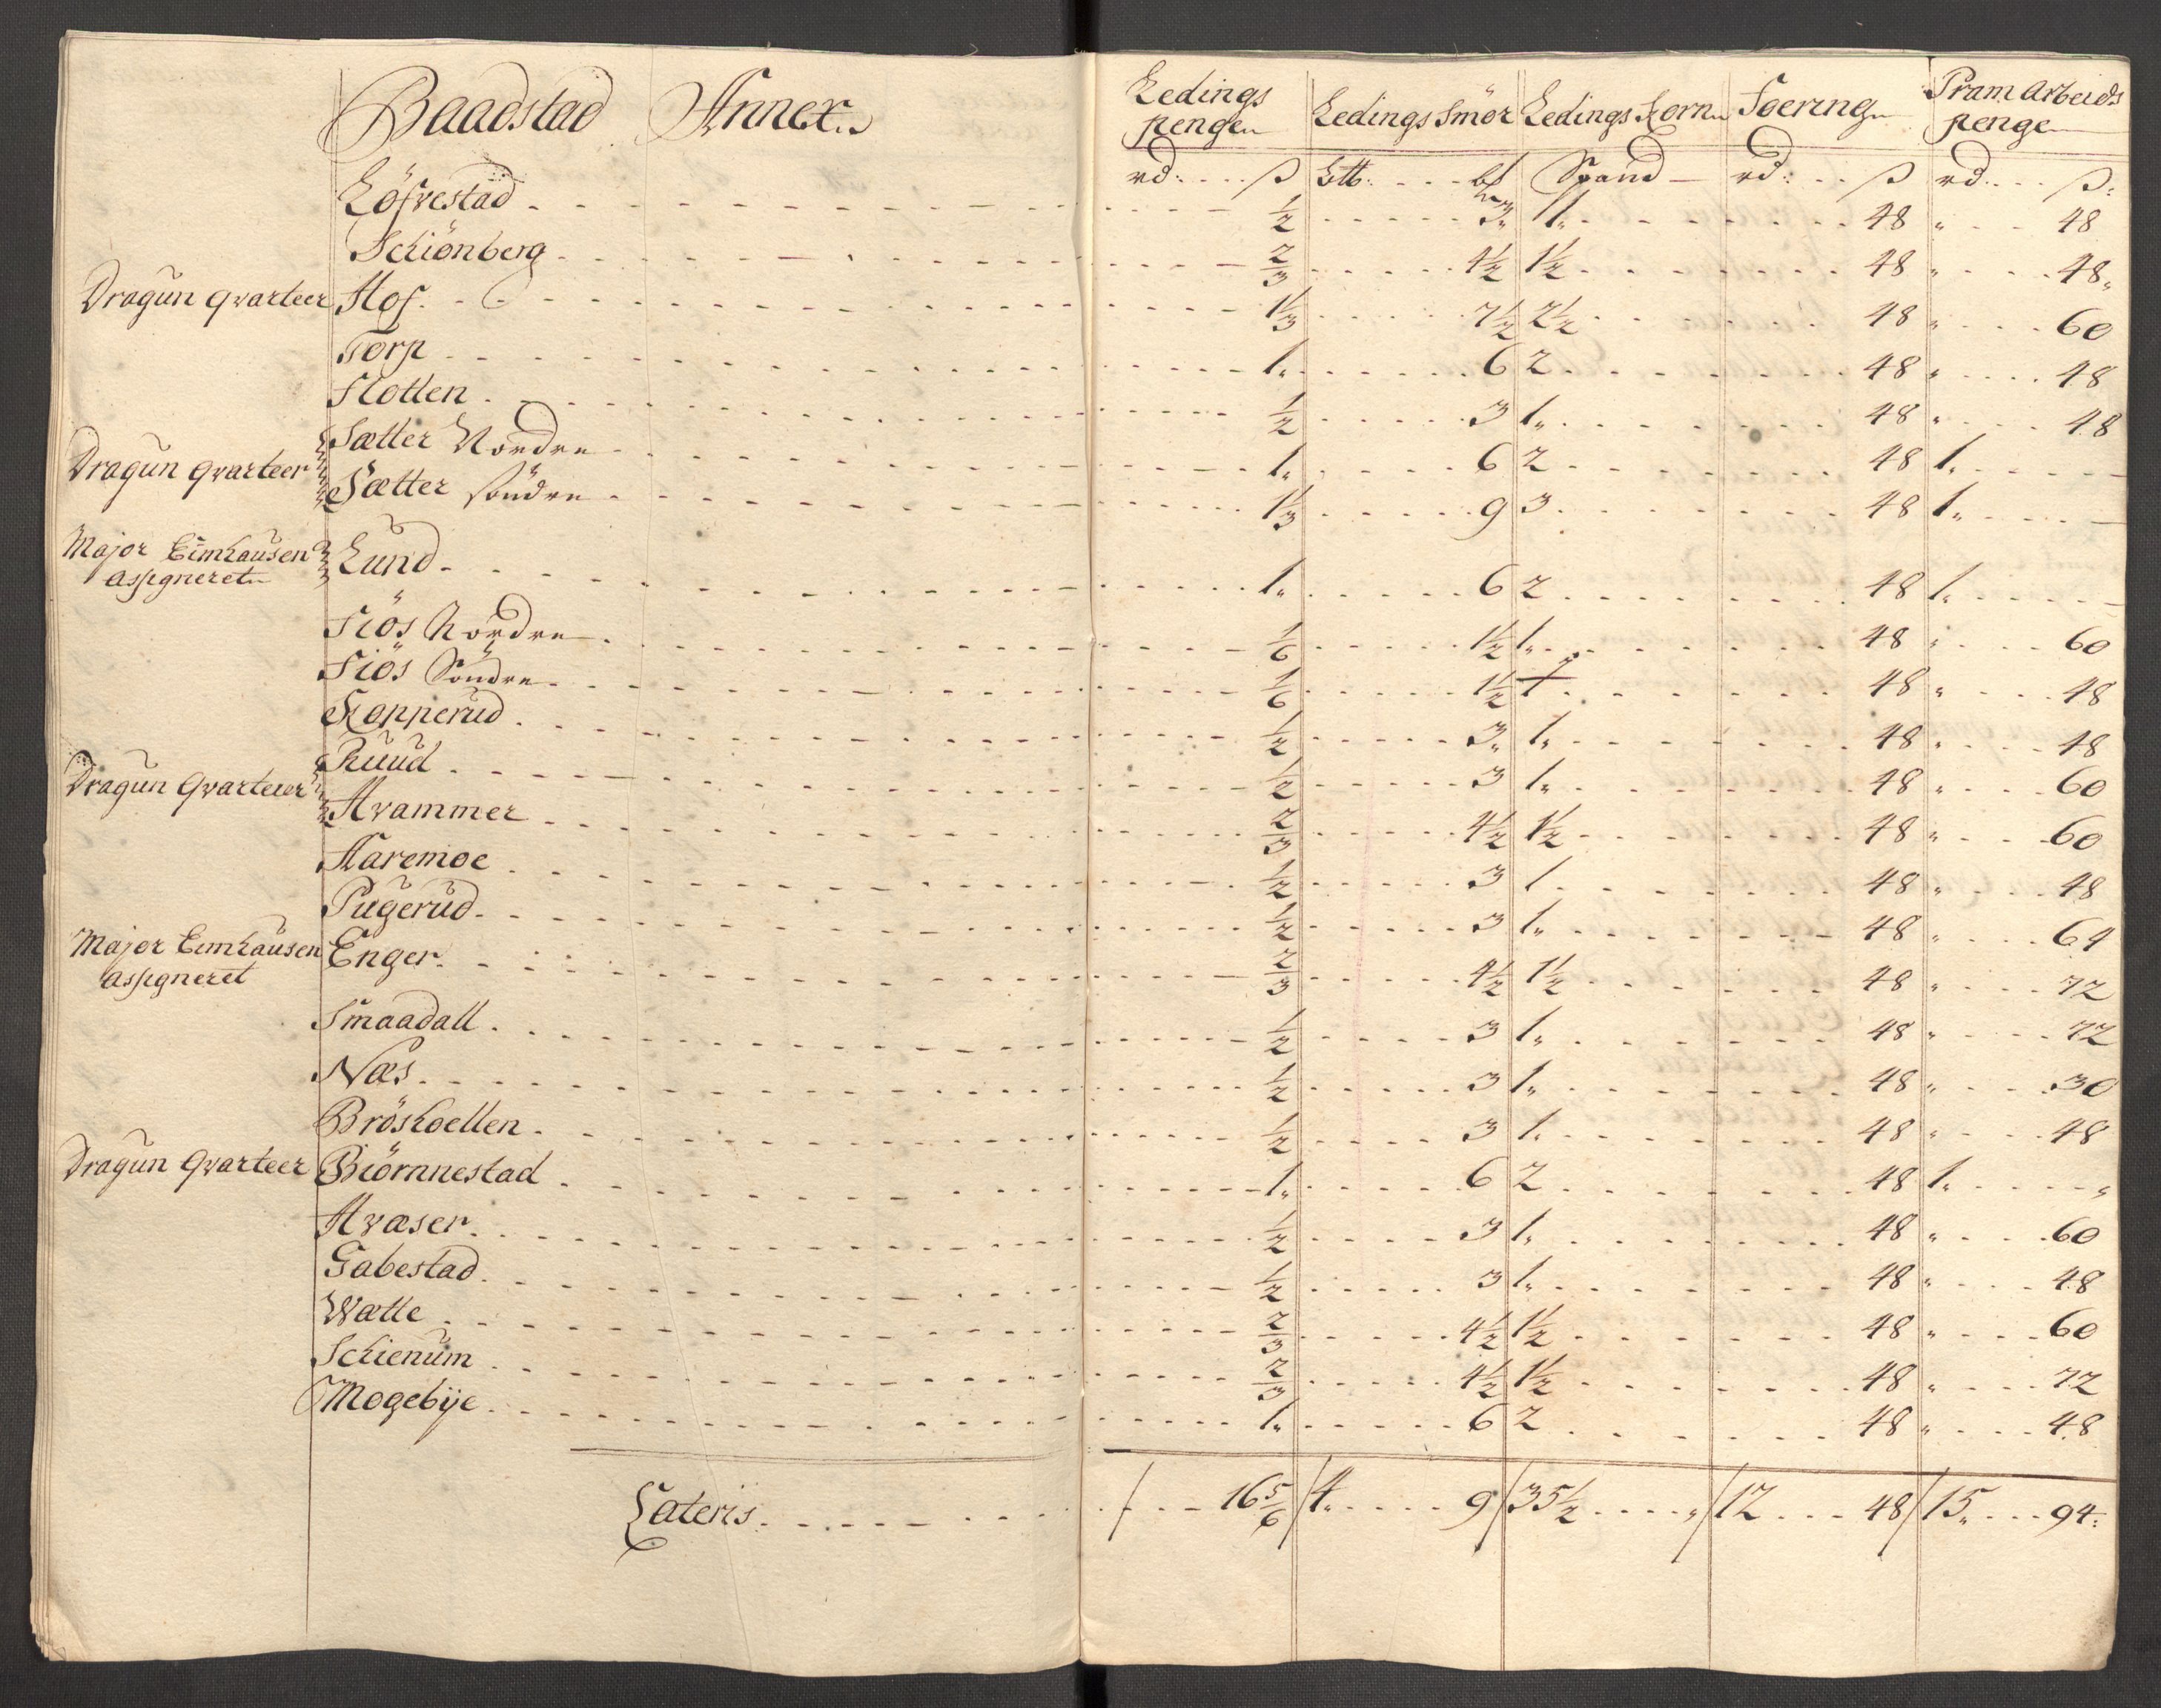 Baadstad Annex
Ledings pengen | Ledings Smör | Ledings Korn | Foering | Pram Arbeids penge
rd: ß | | Spand | rd: ß | rd. ß:
Löfvestad | ½ | 3„ | 1„ | 48 | „ 48
Schiönberg | 2/3 | 4½ | 1½ | 48 | „ 48„
Dragun qvarteer Hof | 1⅓ | 7½ | 2½ | 48 | „ 60
Torp | 1„ | 6 | 2 | 48 | „ 48
Slotten | ½ | 3 | 1„ | 48 | „ 48
Sætter Nordre | 1„ | 6 | 2 | 48 | 1„
Dragun qvarteer Sætter söndre | 1⅓ | 9 | 3 | 48 | 1„
Major Eimhausen assigneret Lund | 1„ | 6 | 2 | 48 | 1„
Siös Nordre | 1/6 | 1½ | 1„ | 48 | „ 60
Siös Söndre | 1/6 | 1½ | 1 | 48 | „ 48
Kopperud | ½ | 3„ | 1„ | 48 | „ 48
Ruud | ½ | 3 | 1„ | 48 | „ 60
Dragun Qvarteer Hvammer | 2/3 | 4½ | 1½ | 48 | „ 60
Haremoe | ½ | 3 | 1 | 48 | „ 48
Pugerud | ½ | 3 | 1„ | 48 | „ 64
Major Eimhausen assigneret Enger | 2/3 | 4½ | 1½ | 48 | „ 72
Smaadall | ½ | 3 | 1„ | 48 | „ 72
Næs | ½ | 3 | 1„ | 48 | „ 30
Bröshoellen | ½ | 3 | 1„ | 48 | „ 48
Dragun Qvarteer Biörnnestad | 1„ | 6 | 2 | 48 | 1„ „
Hvæser | ½ | 3 | 1„ | 48 | „ 60
Gabestad | ½ | 3 | 1„ | 48 | „ 48
Wætle | 2/3 | 4½ | 1½ | 48 | „ 60
Schienum | 2/3 | 4½ | 1½ | 48 | „ 72
Mogebÿe | 1„ | 6 | 2 | 48 | „ 48
Lateris | 16 5/6 | 4„ 9 | 35½ „ | 12 48 | 15„ 94: